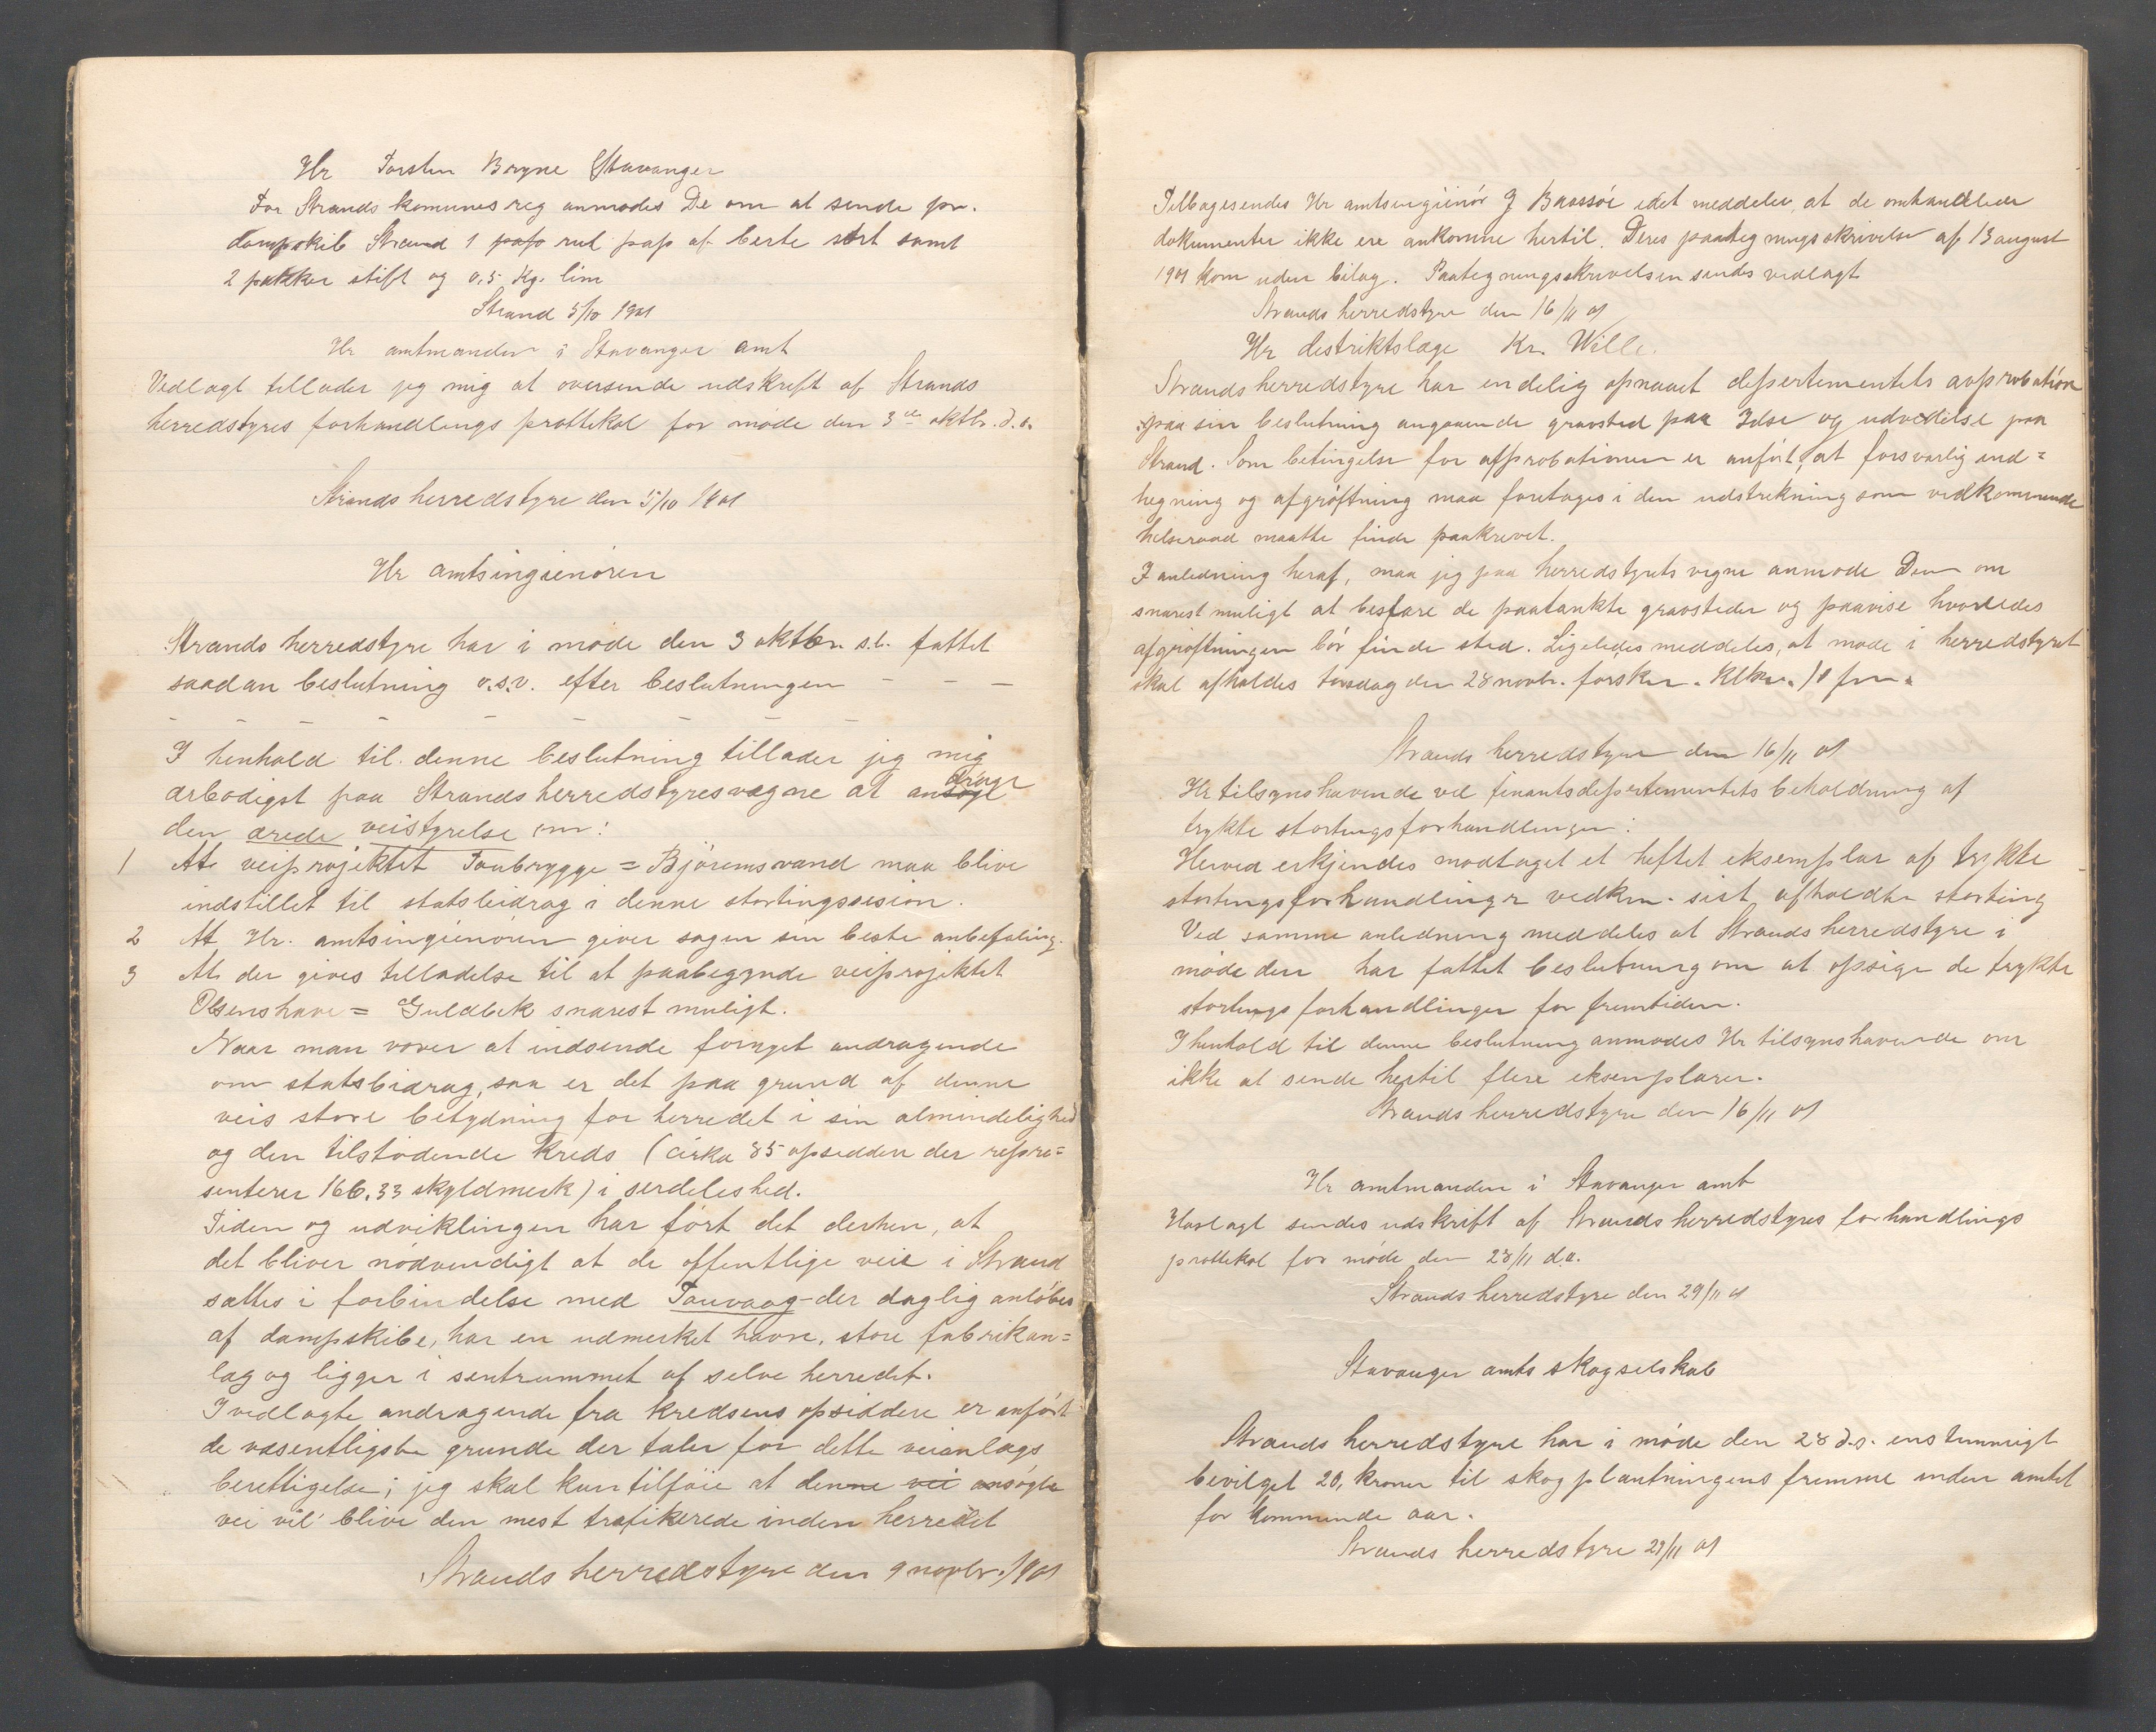 Hr Torsten Bryne Stavanger
For Strands komunes reg anmodes De om at sende pr.
dampskib Strand 1 papp rul pap af beste sort samt
2 pakker stift og 0,5 Kg. lim
Strand 5/10 1901
Hr amtmanden i Stavanger amt
Vedlagt tillader jeg mig at oversende udskrift af Strands
herredstyres forhandlings prottekol for møde den 3de oktbr. d.a.
Strands herredstyre den 5/10 1901
Hr amtsingienøren
Strands herredstyre har i møde den 3 oktbr. s.l. fattet
saadan beslutning o.s.v. efter beslutningen - - -
- - - - - - -
I henhold til denne beslutning tillader jeg mig
ærbødigst paa Strands herredstyres vegne at ansøge drage
den ærede veistyrelse om:
1 At veiprojektet Taubrygge = Bjøremsvand maa blive
indstillet til statsbidrag i denne stortingssesion.
2 At Hr. amtsingienøren giver sagen sin beste anbefaling.
3 At der gives tilladelse til at paabegynde veiprojektet
Olsenshave = Guldbek snarest muligt.
Naar man vover at indsende fornyet andragende
om statsbidrag, saa er det paa grund af denne
veis store betydning for herredet i sin almindelighed
og den tilstødende kreds (cirka 85 opsiddere der repre=
senterer 166,33 skyldmerk) i serdeleshed.
Tiden og udviklingen har ført det derhen, at
det bliver nødvendigt at de offentlige veie i Strand
sættes i forbindelse med Tauvaag - der daglig anløbes
af dampskibe, har en udmerket havn, store fabrikan=
læg og ligger i sentrummet af selve herredet.
I vedlagte andragende fra kredsens opsiddere er anført
de væsentligste grunde der taler for dette veianlægs
berettigelse; jeg skal kun tilføie at denne vei ansøgte
vei vil blive den mest trafikerede inden herredet
Strands herredstyre den 9 novbr. 1901
Tilbagesendes Hr amtsingiénør J Baassøe idet meddeles, at de omhandlede
dokumenter ikke ere ankomne hertil. Deres paategningsskrivelse af 13 august
1901 kom uden bilag. Paategningsskrivelsen sendes vedlagt
Strands herredstyre den 16/11 01
Hr distriktslæge Kr. Wille.
Strands herredstyre har endelig opnaaet departementets approbation
paa sin beslutning angaaende gravsted paa Idse og udvidelse paa
Strand. Som betingelse for approbationen er anført, at forsvarlig ind=
hegning og afgrøftning maa foretages i den udstrekning som vedkommende
helseraad maatte finde paakrevet.
I anledning heraf, maa jeg paa herredstyrets vegne anmode Dem om
snarest muligt at besfare de paatænkte gravsteder og paavise hvorledes
afgrøftningen bør finde sted. Ligeledes meddeles, at møde i herredstyret
skal afholdes torsdag den 28 novbr. førstkm. Klkn. 10 fm.
Strands herredstyre den 16/11 01
Hr tilsynshavende ved finantsdepartementets beholdning af
trykte stortingsforhandlinger:
Herved erkjendes modtaget et heftet eksemplar af trykte
stortingsforhandlinger vedkm. sist afholdte storting
Ved samme anledning meddeles at Strands herredstyre i
møde den har fattet beslutning om at opsige de trykte
stortingsforhandlinger for fremtiden.
I henhold til denne beslutning anmodes Hr tilsynshavende om
ikke at sende hertil flere eksemplarer.
Strands herredstyre den 16/11 01
Hr amtmanden i Stavanger amt
Hoslagt sendes udskrift af Strands herredstyres forhandlings
prottekol for møde den 28/11 d.a.
Strands herredstyre den 29/11 01
Stavanger amts skogselskab
Strands herredstyre har i møde den 28 d.s. enstemmigt
bevilget 20, kroner til skogplantningens fremme inden amtet
for kommende aar.
Strands herredstyre 29/11 01